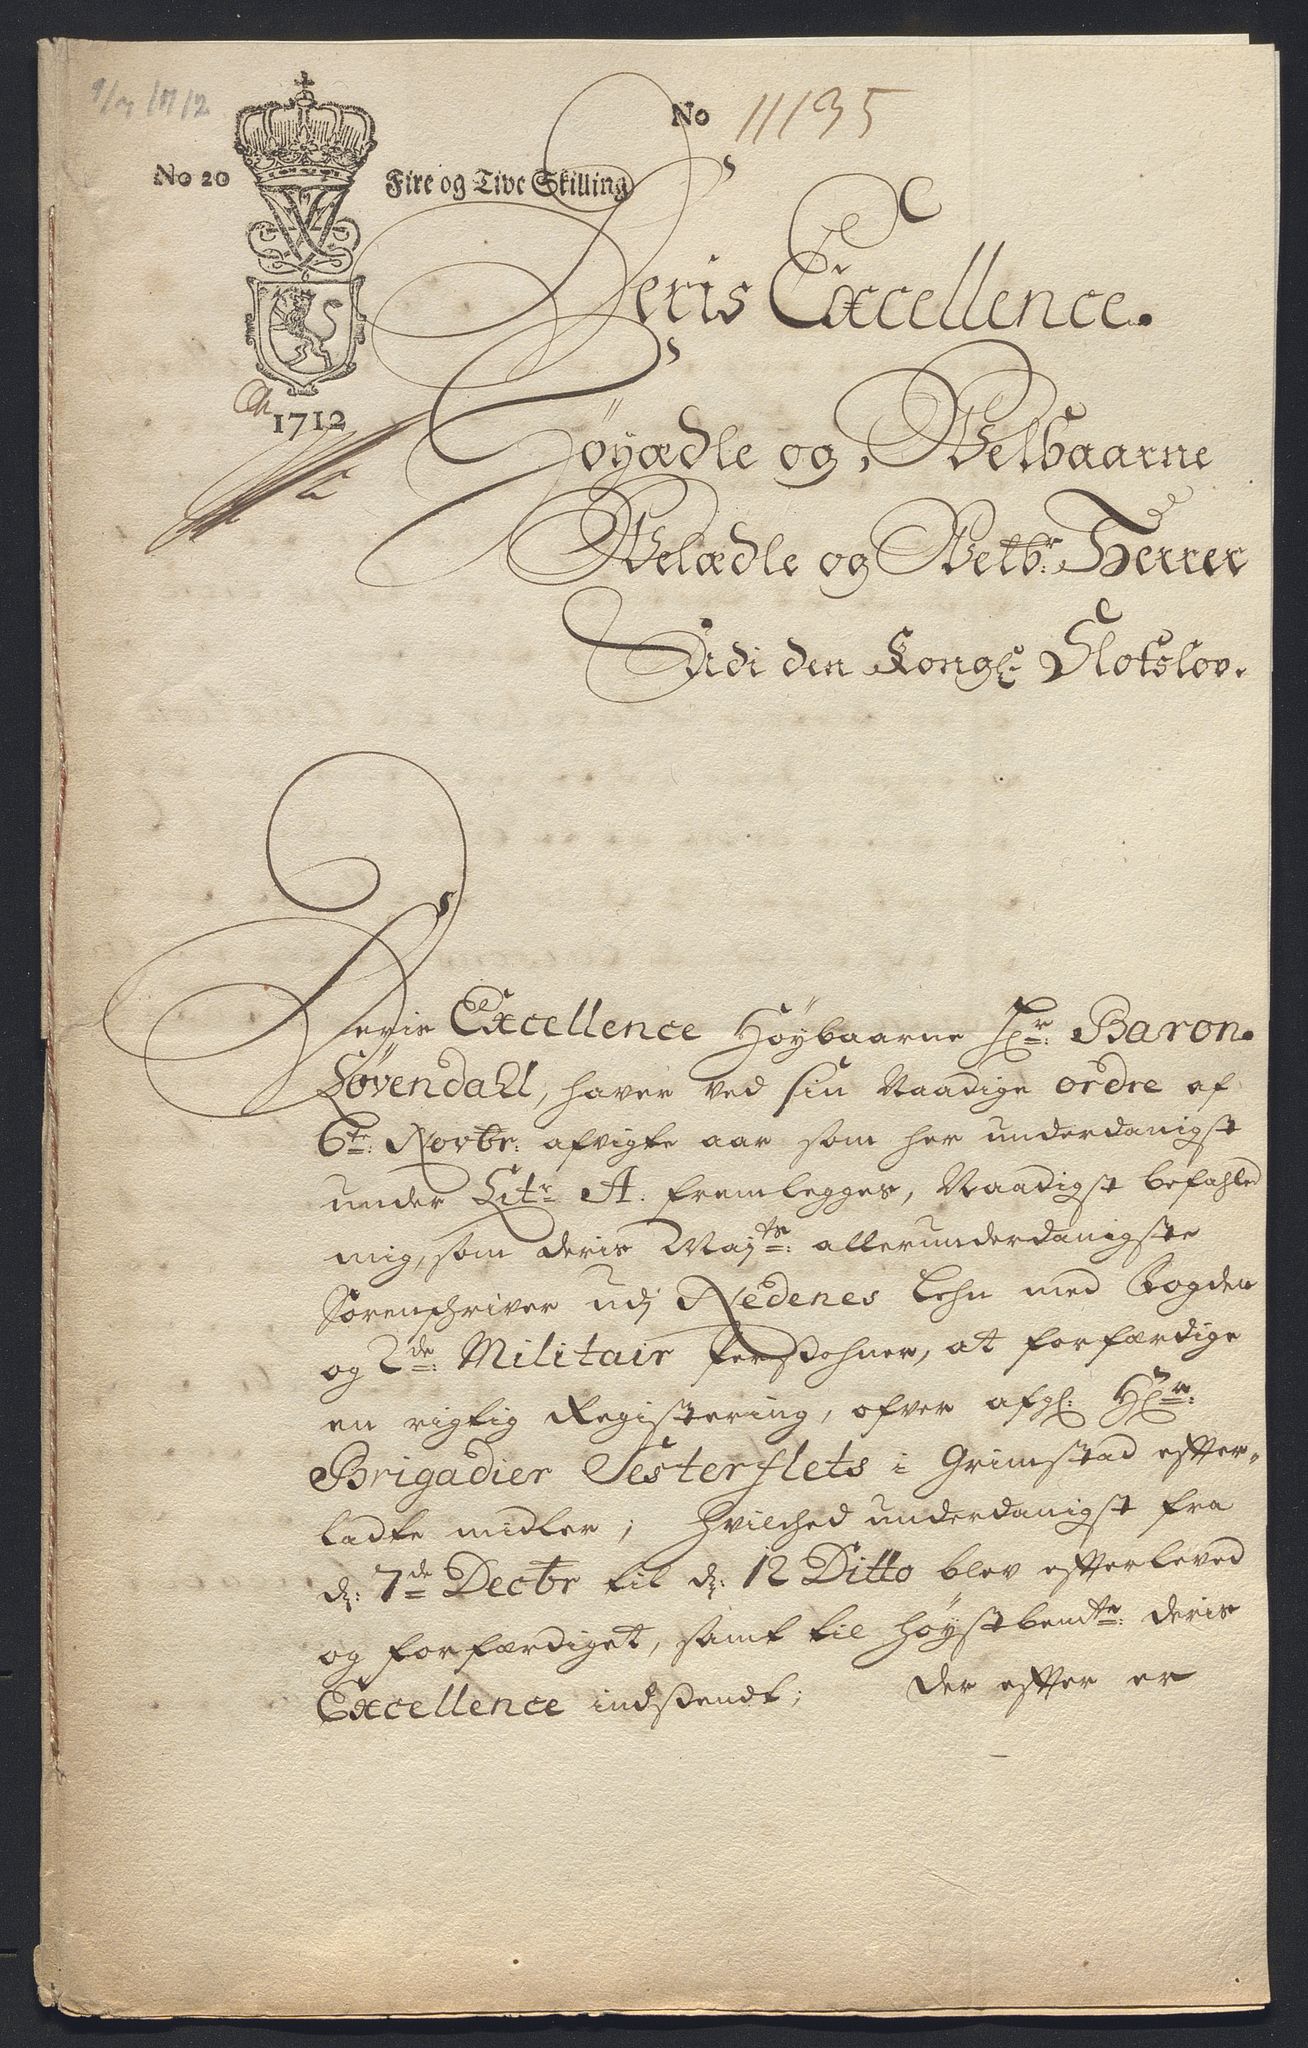 9/7 1712
No 11135
No 20 Fire og Tive Skilling
1712
Deris Excellence.
Høyædle og Welbaarne
Welædle og Welbr: Herrer
Udi den Kongl: Slotslov.
Deris Excellence Høybaarne Hr: Baron
Løvendahl, haver ved sin Naadige ordre af
6te: Novbr: afvigte aar som her underdanigst
under Litr A. fremlegges, Naadigst befahled
mig, som deris Majts: allerunderdanigste
Sorenschriver udj Nedenes Lehn med Fogden
og 2de: Militair Perßohner, at forfærdige
en rigtig Registering, ofver afgl: Hr:
Brigadier Testerflets i Grimstad effter-
ladte midler; Hvilched underdanigst fra
d: 7de Decbr til d: 12 Ditto blev effterleved
og forfærdiget, samt til Høystbemte: deris
Excellence indßendt; Der effter er